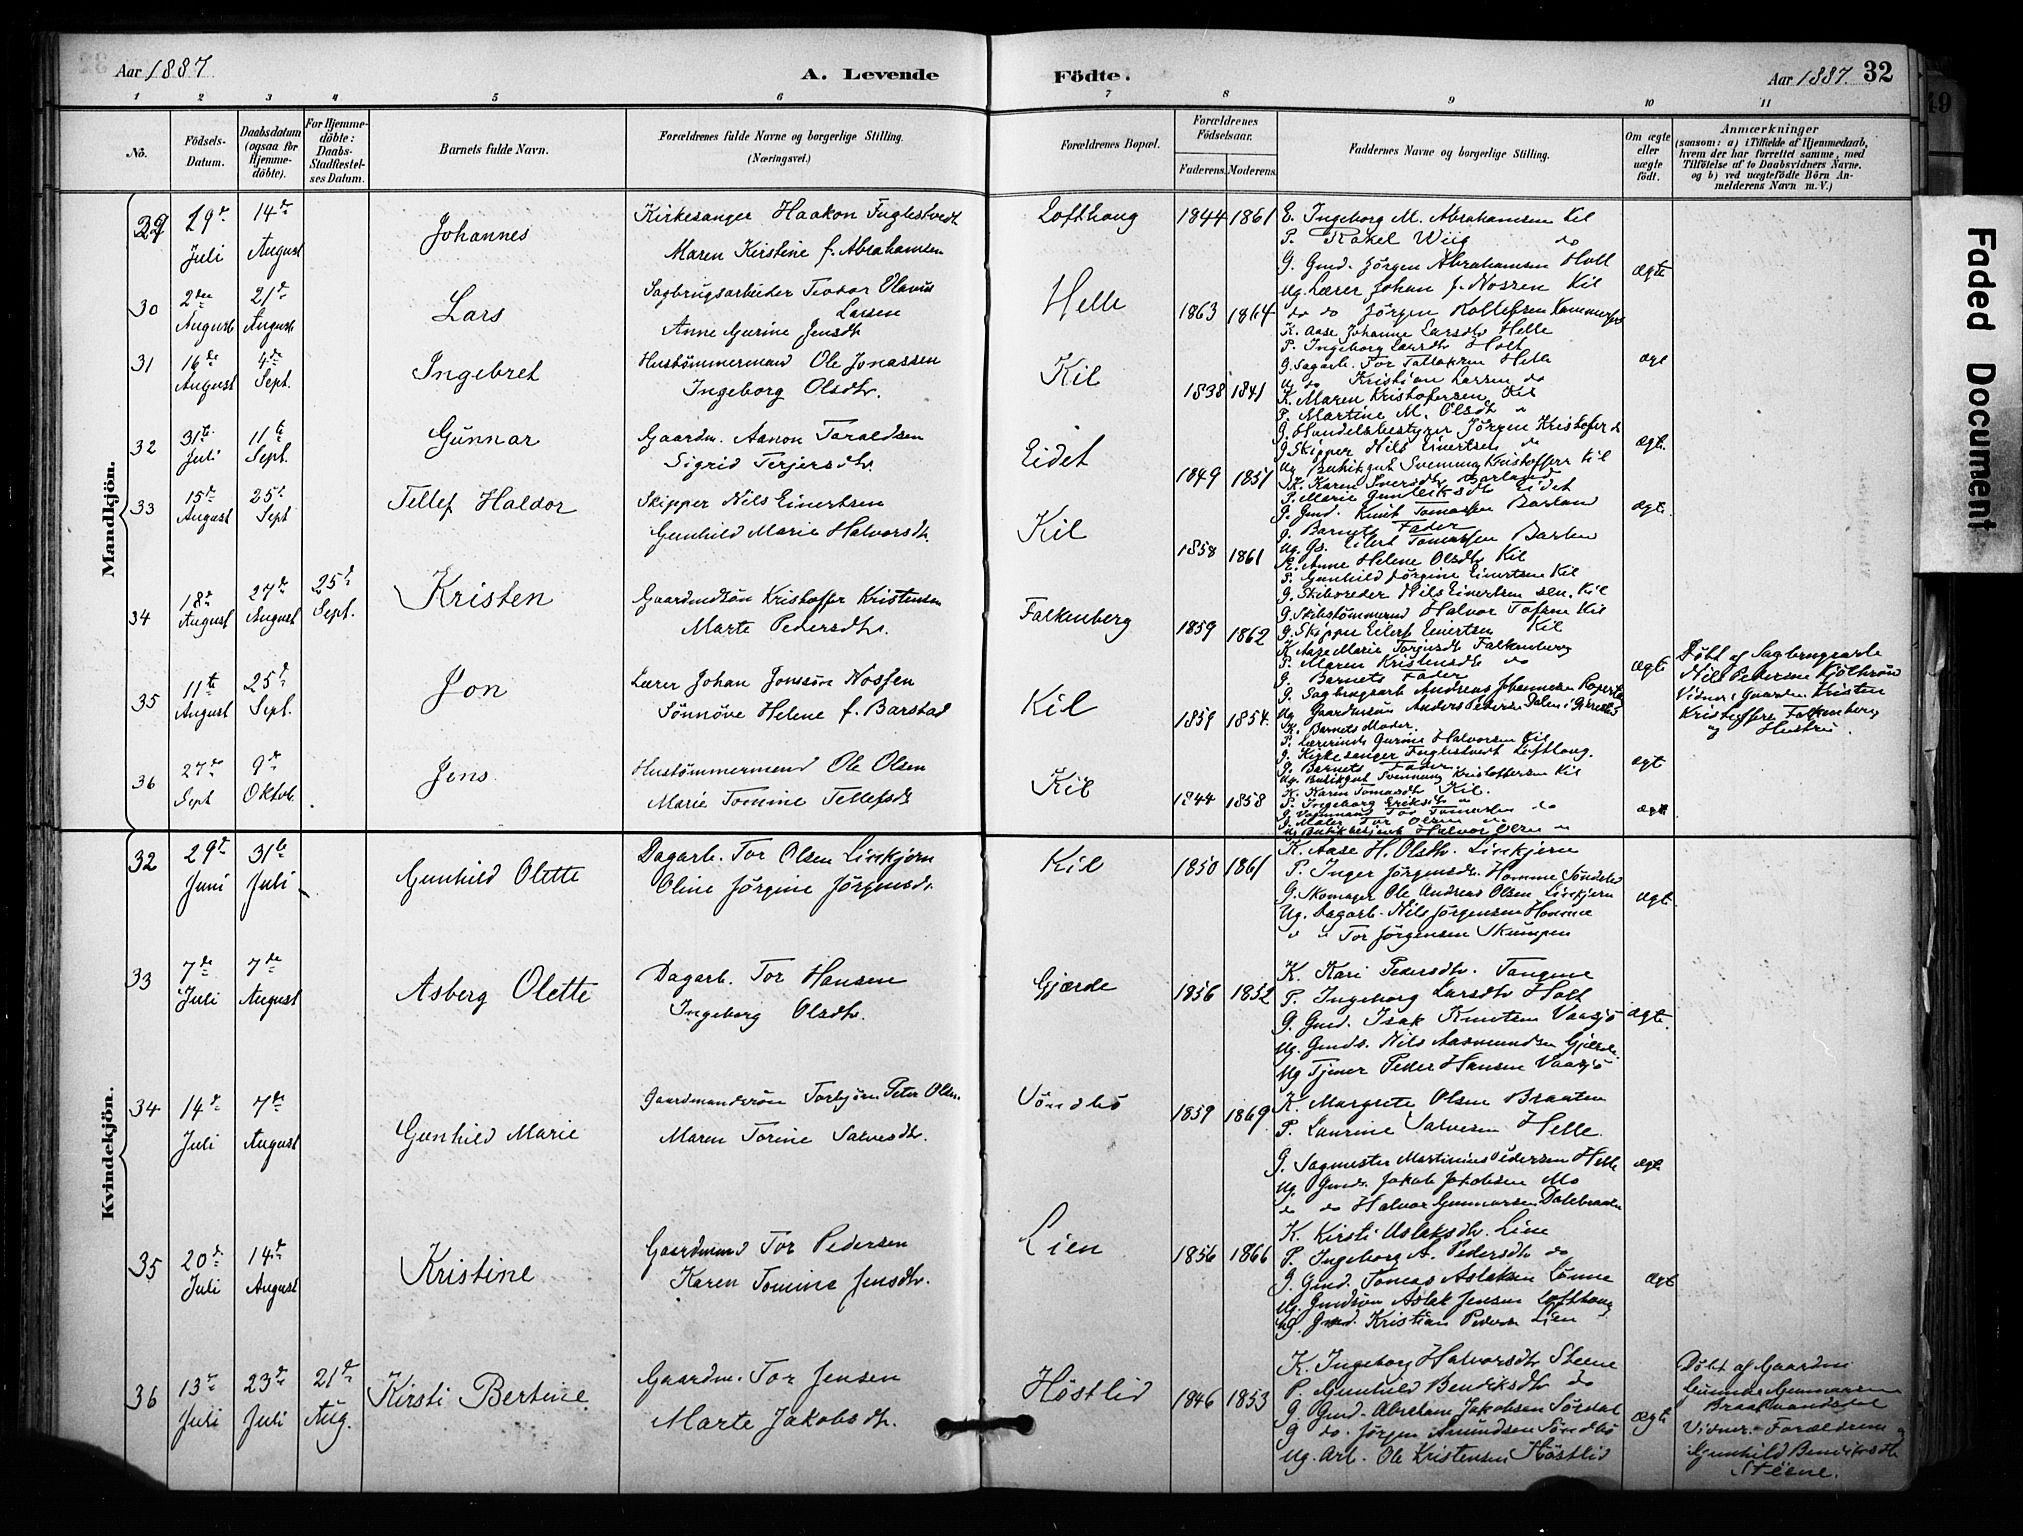 Aar 1887
A. Levende
Födte.
Aar 1887. 32
1 2 3 4 5 6 7 8 9 10 11
No.
Födsels-
Datum.
Daabsdatum
(ogsaa for
Hjemme-
döbte).
For Hjemme-
döbte:
Daabs-
Stadfæstel-
ses Datum.
Barnets fulde Navn.
Forældrenes fulde Navne og borgerlige Stilling.
(Næringsvei.)
Forældrenes Bopæl.
Forældrenes
Födselsaar.
Faderens. Moderens.
Faddernes Navne og borgerlige Stilling.
Om ægte
eller
uægte
födt.
Anmærkninger
(saasom: a) i Tilfælde af Hjemmedaab,
hvem der har forrettet samme, med
Tilföielse af to Daabsvidners Navne.
og b) ved uægtefödte Börn An-
melderens Navn m. V.)
Mandkjön.
29 29de Juli 14de August
Johannes
Kirkesanger Haakon Fuglestvedt
Maren Kirstine f. Abrahamsen
Lofthaug
1844 1861
E. Ingeborg M. Abrahamsen Kil
P. Rakel Wiig do
G. Gmd. Jørgen Abrahamsen Holt
Ug. Lærer Johan J. Nossen Kil
ægte
30 2den August 21de August
Lars
Sagbrugsarbeider Teodor Olavus
Larsen
Anne Gurine Jensdtr
Helle
1863 1864
K. Aase Johanne Larsdtr Helle
P. Ingeborg Larsdtr Holt
G. Sagarb. Tor Tallaksen Helle
Ug do Kristian Larsen do
ægt
31 16de August 4de Sept.
Ingebret
Hustømmermand Ole Jonassen
Ingeborg Olsdtr.
Kil
1838 1841
K. Maren Kristofersen Kil
P. Martine M. Olsdtr "
G. Handelsbestyrer Jörgen Kristofer do
G. Skipper Nils Einertsen do
ægte.
32 31te Juli 11te Sept.
Gunnar
Gaardm. Aanon Taraldsen
Sigrid Terjersdtr.
Eidet
1849 1851
P. Marie Gunleiksdtr Eidet
G. Gmd. Knut Tomassen Barland
G. Barnets Fader
ægt.
33 15de August 25de Sept
Tellef Haldor
Skipper Nils Einertsen
Gunhild Marie Halvorsdtr.
Kil
1858 1861
K. Anne Helene Olsdtr Kil
P. Gunhild Jørgine Einertsen Kil
G. Skibsreder Nils Einertsen sen. Kil
G. Skibstømmermd Halvor Tofsen Kil
G. Skipper Eilert Einertsen Kil
34 18de August 27de August 25de Sept.
Kristen
Gaardmdsön Kristoffer Kristensen
Marte Pedersdtr.
Falkenberg
1859 1862
K. Aase Marie Torjusdtr Falkenberg
P. Maren Kristensdtr do
G. Barnets Fader
ægte
Døbt af Sagbrugsarb
Nils Pedersen
Vidner: Gaardm. Kristen
Kristoffersen Falkenberg
og Hustru.
35 11te August 25de Sept.
Jon
Lærer Johan Jonssøn Nossen
Sønnöve Helene f. Barstad
Kil
1859 1854.
K. Barnets Moder.
P. Lærerinde Gurine Halvorsen Kil
G. Kirkesanger Fuglestvedt Lofthaug.
G. Barnets Fader
ægt
36 27de Sept 9de Oktob.
Jens
Hustømmermand Ole Olsen
Marie Tomine Tellefsdtr
Kil
1844 1858
K. Karen Tomasdtr Kil.
P. Ingeborg Eriksdtr "
G. Maler Tor Olsen "
ægt
Kvindekjön.
32 29de Juni 31te Juli
Gunhild Olette
Dagarb. Tor Olsen Linkjern
Oline Jörgine Jörgensdtr.
Kil
1850 1861
K. Aase H. Olsdtr. Linkjern
P. Inger Jörgensdtr. Homme Søndeled
G. Skomager Ole Andreas Olsen Linkjern
Ug. Dagarb. Nils Jörgensen Homme
" " Tor Jörgensen Skumpen
ægt.
33 7de Juli 7de August
Asberg Olette
Dagarb. Tor Hansen
Ingeborg Olsdtr.
Gjærde
1856 1852
K. Kari Pedersdtr. Tangene
P. Ingeborg Larsdtr Holt
G. Gmd. Isak Knutsen Vaasjö
Ug. Gmds. Nils Aasmundsen Gjærde
Ug Tjener Peder Hansen Vaasjö
ægte.
34 14de Juli 7de August
Gunhild Marie
Gaardmandssön Torbjörn Peter Olsen.
Maren Torine Salvesdtr.
Søndbø
1859 1869.
K. Margrete Olsen Braaten
P. Laurine Salvesen Helle.
G. Sagmester Martinius Pedersen Helle
Ug. Gmds. Jakob Jakobsen Mo
do do Halvor Gunnarsen Dalebraaten
ægte
35 20de Juli 14de August
Kristine
Gaardmand Tor Pedersen
Karen Tomine Jensdtr.
Lien
1856 1866
K. Kirsti Aslaksdtr. Lien
P. Ingeborg A. Pedersdtr do
G. Gmd. Tomas Aslaksen Lönne
Ug. Gmdsön Aslak Jensen Lofthaug
Ug. Gmd. Kristian Pedersen Lien
ægt
36 13de Juli 23de Juli 21de Aug.
Kirsti Bertine
Gaardm. Tor Jensen
Marte Jakobsdtr.
Höstlid
1846 1853
K. Ingeborg Halvorsdtr Steene
P. Gunhild Bendiksdtr do
G. Gmd. Abraham Jakobsen Sördal
G do. Jörgen Amundsen Søndbø
Ug. Arb. Ole Kristensen Höstlid
ægte
Döbt af Gaardm.
Gunnar Gunnarsen
Braatvandsdal
Vidner: Forældrene og
Gunhild Bendiksdtr
Steene.
Faded Document
49